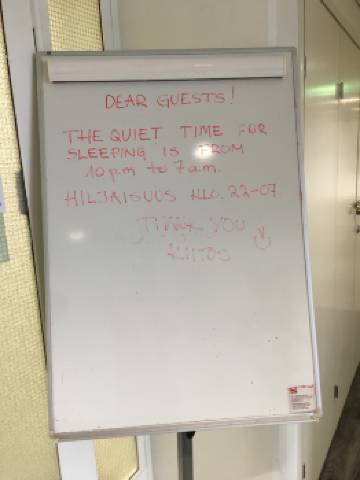 DEAR GUESTS!
THE QUIET TIME FOR
SLEEPING IS FROM
10 pm to 7 am.
HILJAISUUS KLO. 22-07.
THANK YOU
KIITOS